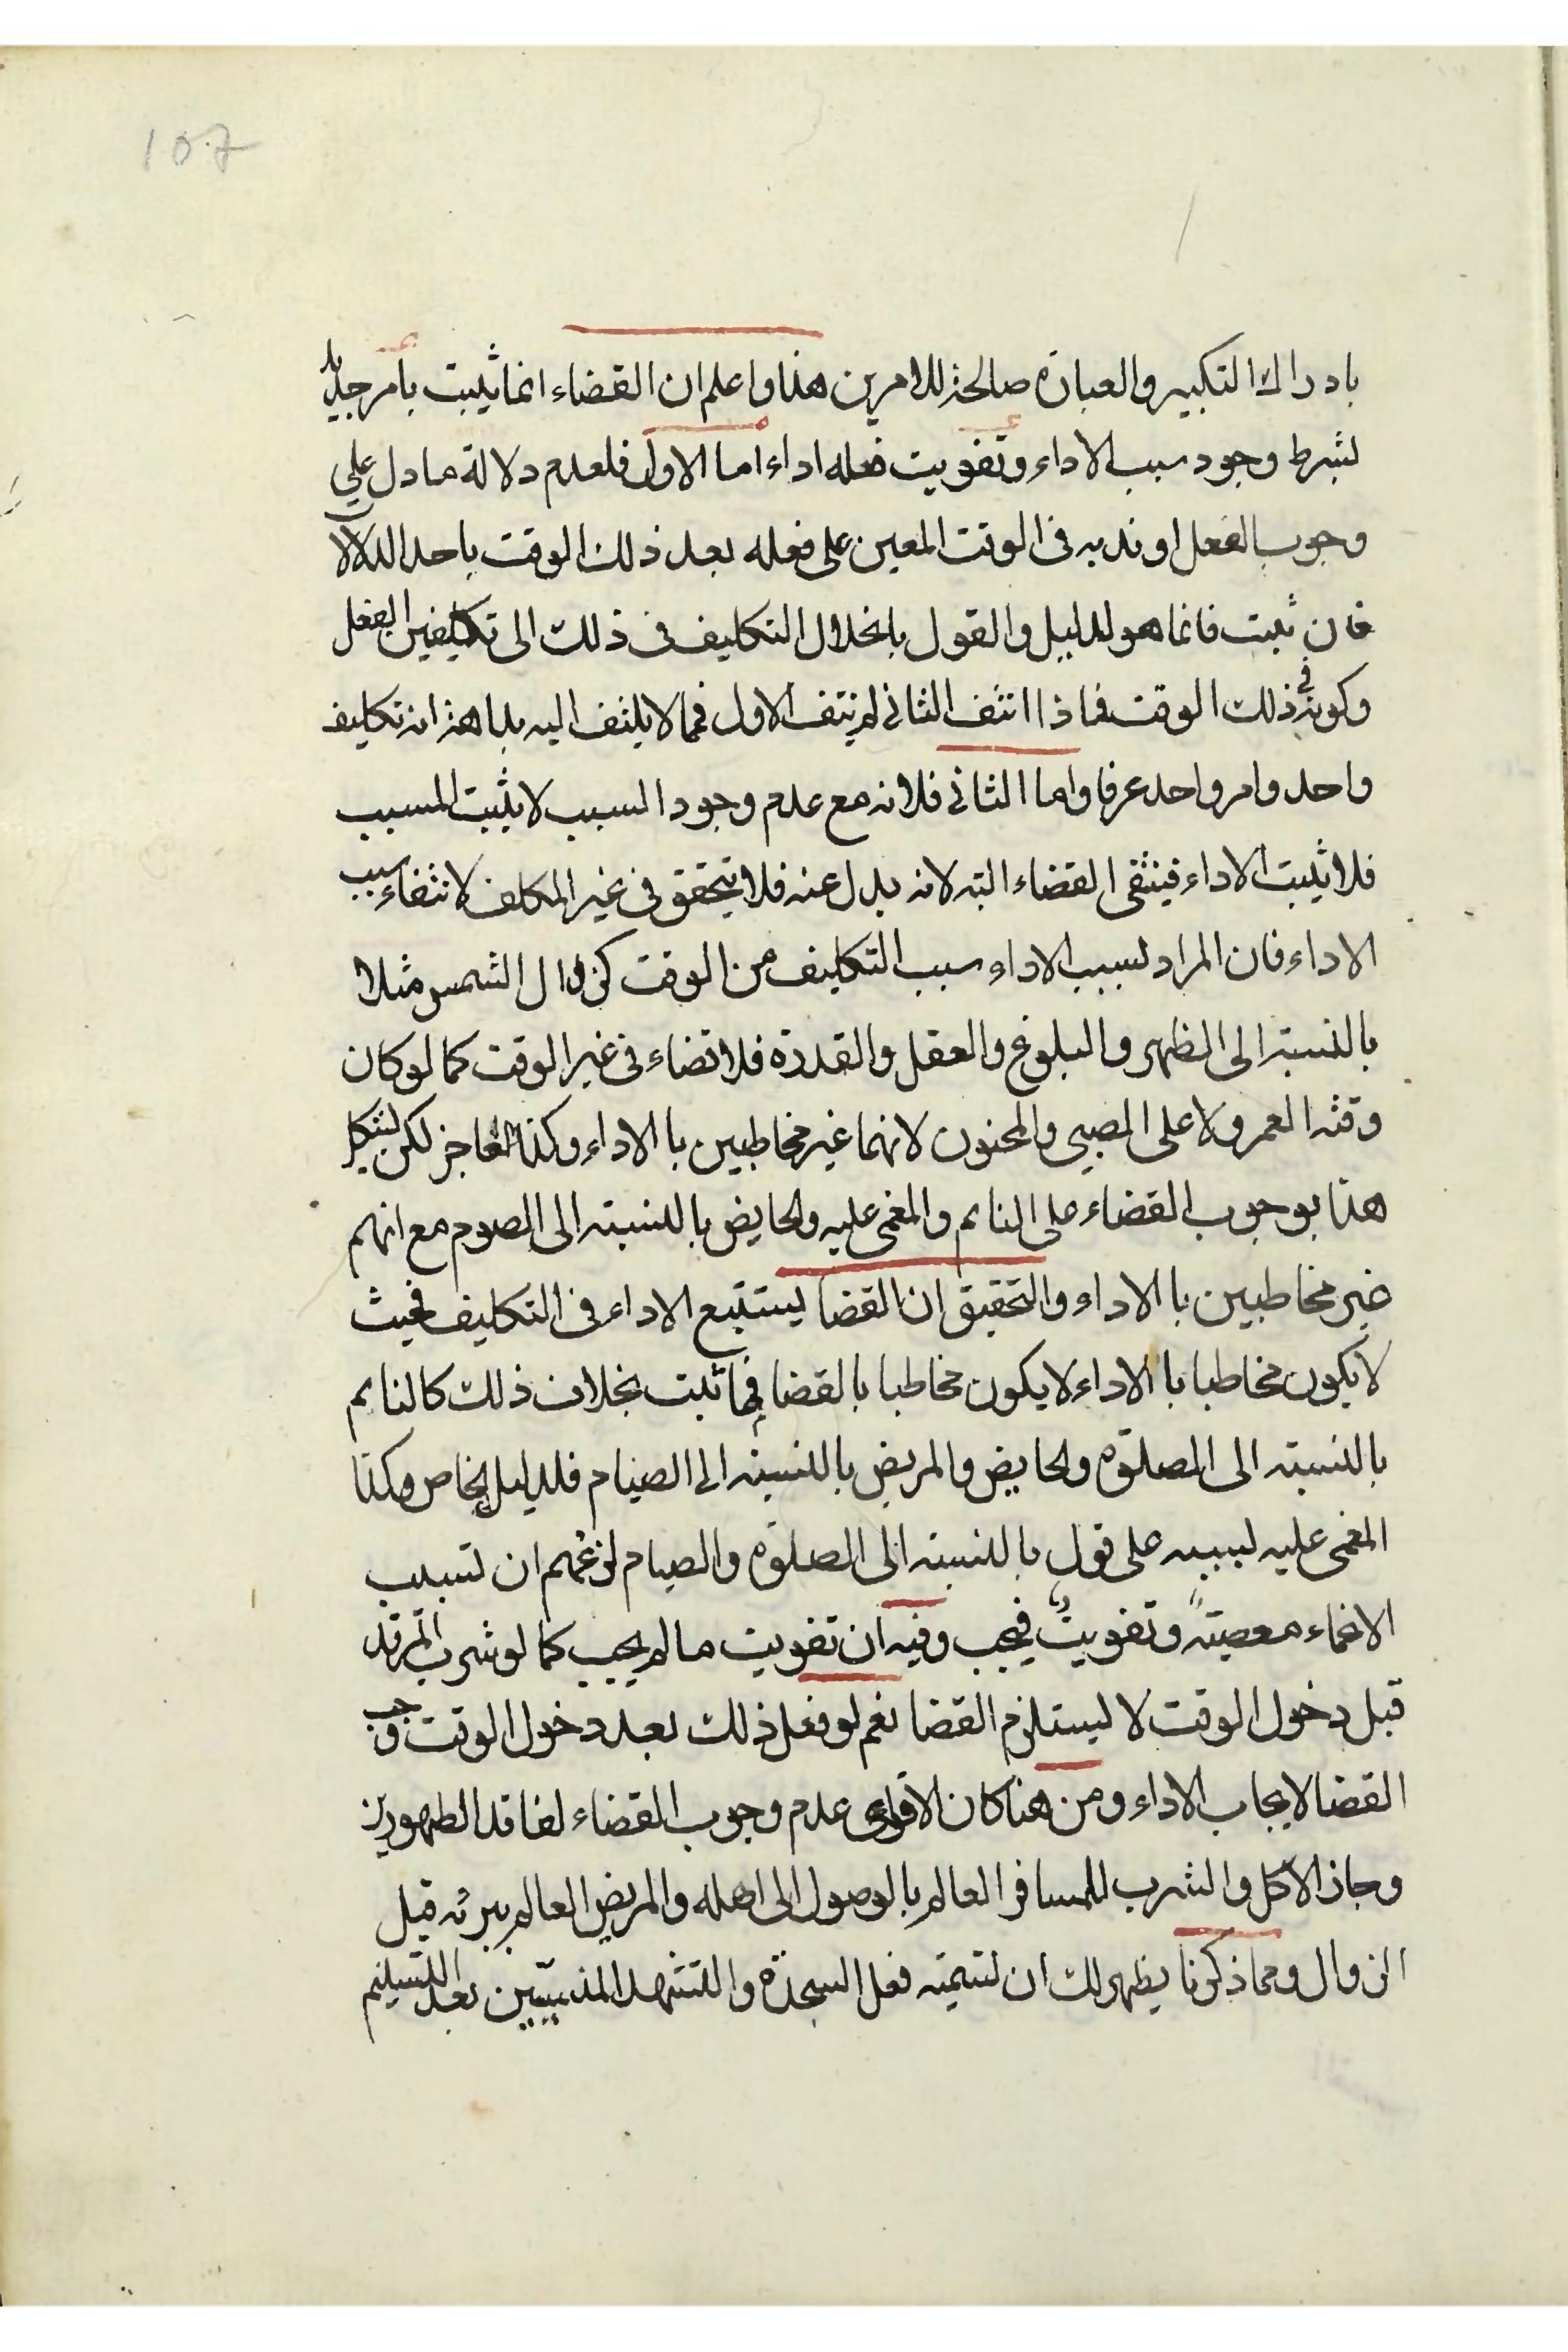 107
بادراك التكبير والعبارة صالحة للامرين هذا واعلم ان القضاء انما يثبت بامر جديد
بشرط وجود سبب الاداء وتفويت فعله اداء اما الاول فلعدم دلالة ما دل على
وجوب الفعل او ندبه في الوقت المعين على فعله بعد ذلك الوقت باحد الدلالا
فان ثبت فانما هو لدليل والقول بانحلال التكليف في ذلك الى تكليفين الفعل
وكونه في ذلك الوقت فاذا انتف الثاني لم ينتف الاول فمما لا يلتف اليه بداهة انه تكليف
واحد وامر واحد عرفا واما الثاني فلانه مع عدم وجود السبب لا يثبت المسبب
فلا يثبت الاداء فينتفى القضاء البته لانه بدل عنه فلا يتحقق في غير المكلف لانتفاء سبب
الاداء فان المراد بسبب الاداء سبب التكليف من الوقت كزوال الشمس مثلا
بالنسبة الى الظهر والبلوغ والعقل والقدرة فلا قضاء في غير الوقت كما لو كان
وقته العمر ولا على الصبي والمجنون لانهما غير مخاطبين با الاداء وكذا العاجز لكن يشكل
هذا بوجوب القضاء على النايم والمغمى عليه والحايض بالنسبته الى الصوم مع انهم
غير مخاطبين با الاداء والتحقيق ان القضا يستتبع الاداء في التكليف فحيث
لا يكون مخاطبا با الاداء لا يكون مخاطبا بالقضا فما ثبت بخلاف ذلك كالنايم
بالنسبته الى الصلوة والحايض والمريض بالنسبته الى الصيام فلدليل الخاص وكذا
المغمى عليه بسببه على قول بالنسبته الى الصلوة والصيام لزعمهم ان تسبيب
الاغماء معصيتة وتفويت فيجب وفيه ان تفويت ما لم يجب كما لو شرب المرقد
قبل دخول الوقت لا يستلزم القضا نعم لو فعل ذلك بعد دخول الوقت وجب
القضا لايجاب الاداء ومن هنا كان الاقوى عدم وجوب القضاء لفاقد الطهورين
وجاز الاكل والشرب للمسافر العالم بالوصول الى اهله والمريض العالم ببرئه قبل
الزوال ومما ذكرنا يظهر لك ان تسميته فعل السجدة والتشهد المنسيين بعد التسليم